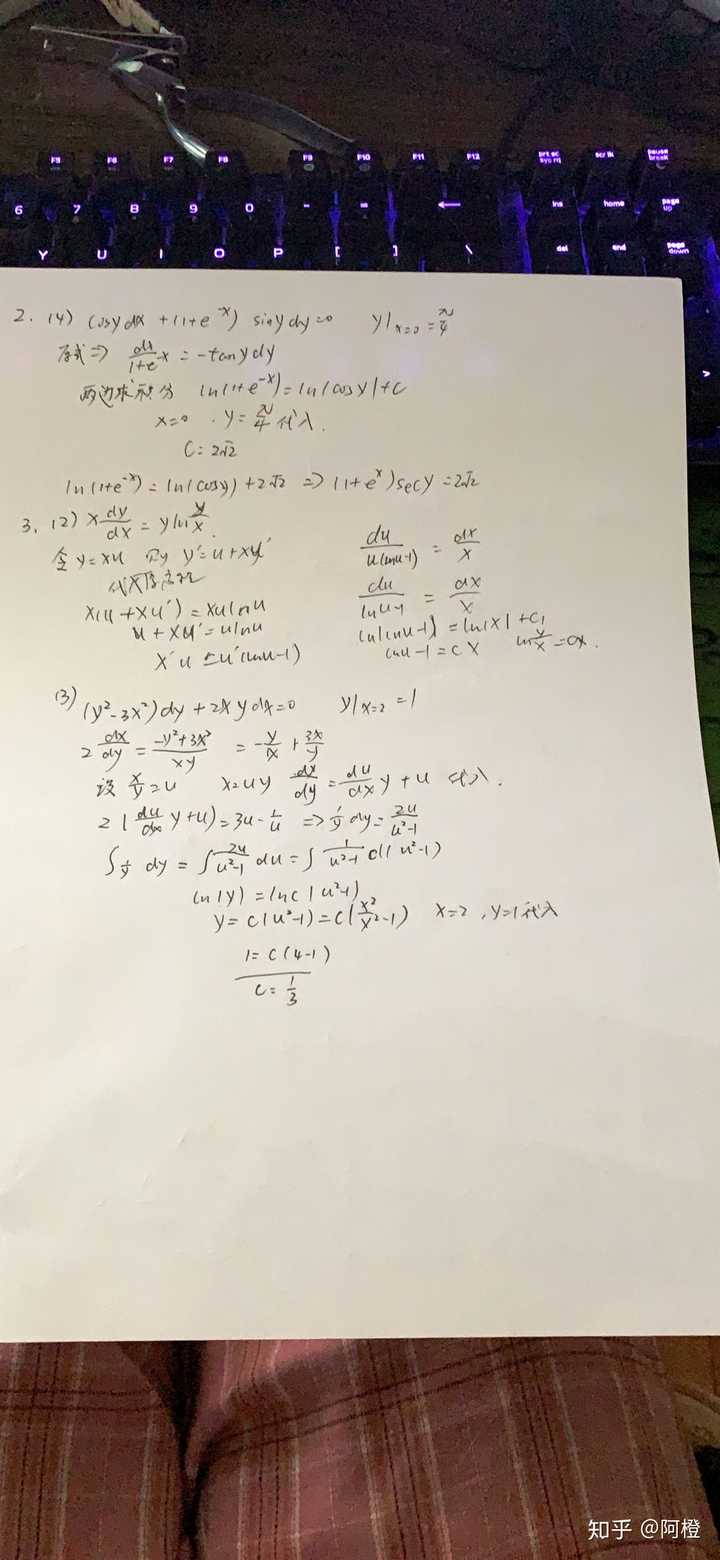 F5 F6 F7 F8 F9 F10 F11 F12 prt sc sys rq scr lk pause break
6 7 8 9 0 - = ← ins home page up
Y U I O P [ ] \ del end page down
2. (4) cosy dx + (1+e^-x) siny dy=0 y|x=0 = π/4
原式⇒ dx/1+e^-x = -tany dy
两边求积分 ln(1+e^-x)=ln|cosy|+C
x=0 , y=π/4 代入.
C=2√2
ln(1+e^-x)=ln(cosy)+2√2 ⇒ (1+e^x)secy=2√2
3. (2) x dy/dx = y ln y/x.
令 y=xu 则 y'=u+xu'
代入原方程
x(u+xu')=xulnu
u+xu'=ulnu
x'u = u'(lnu-1)
du/u(lnu-1) = dx/x
du/lnu-1 = dx/x
ln(lnu-1)=ln|x|+C1
lnu-1=Cx ln y/x=Cx.
(3) (y²-3x²)dy+2xydx=0 y|x=2 =1
2 dx/dy = -y²+3x²/xy = -y/x + 3x/y
设 x/y=u x=uy dx/dy = du/dx y+u 代入.
2(du/dx y+u)=3u-1/u ⇒ 1/y dy = 2u/u²-1
∫1/y dy = ∫2u/u²-1 du = ∫1/u²-1 d(u²-1)
ln|y|=lnc|u²-1|
y=C(u²-1)=C(x²/x²-1) x=2 , y=1代入
1=C(4-1)
C=1/3
知乎 @阿橙